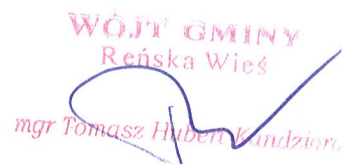 WÓJT GMINY
Reńska Wieś
mgr Tomasz Hubert Kandziora